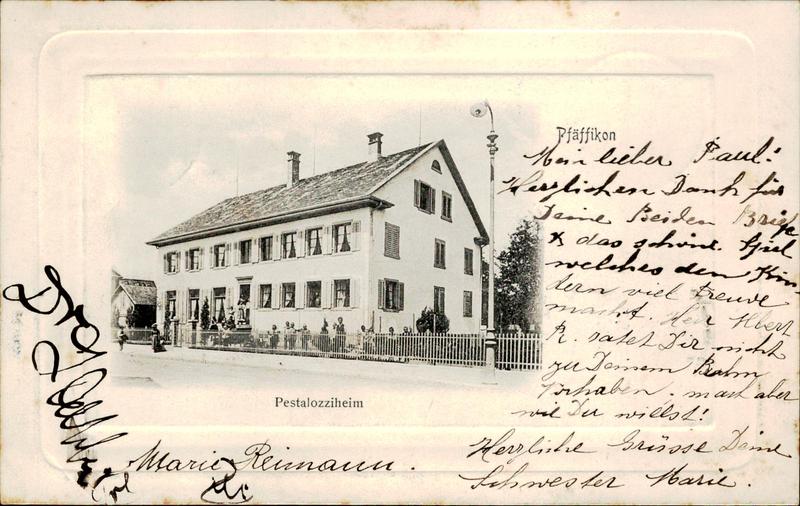 Pfäffikon
Mein lieber Paul!
Herzlichen Dank für
Deine Beiden Briefe
& das schöne Spiel
welches den Kin
dern viel Freude
macht. Herr
R. ratet Dir nicht
zu Deinem
Vorhaben, mach aber
wie Du willst!
Herzliche Grüsse Deine
Schwester Marie.
Pestalozziheim
Marie Reimann.